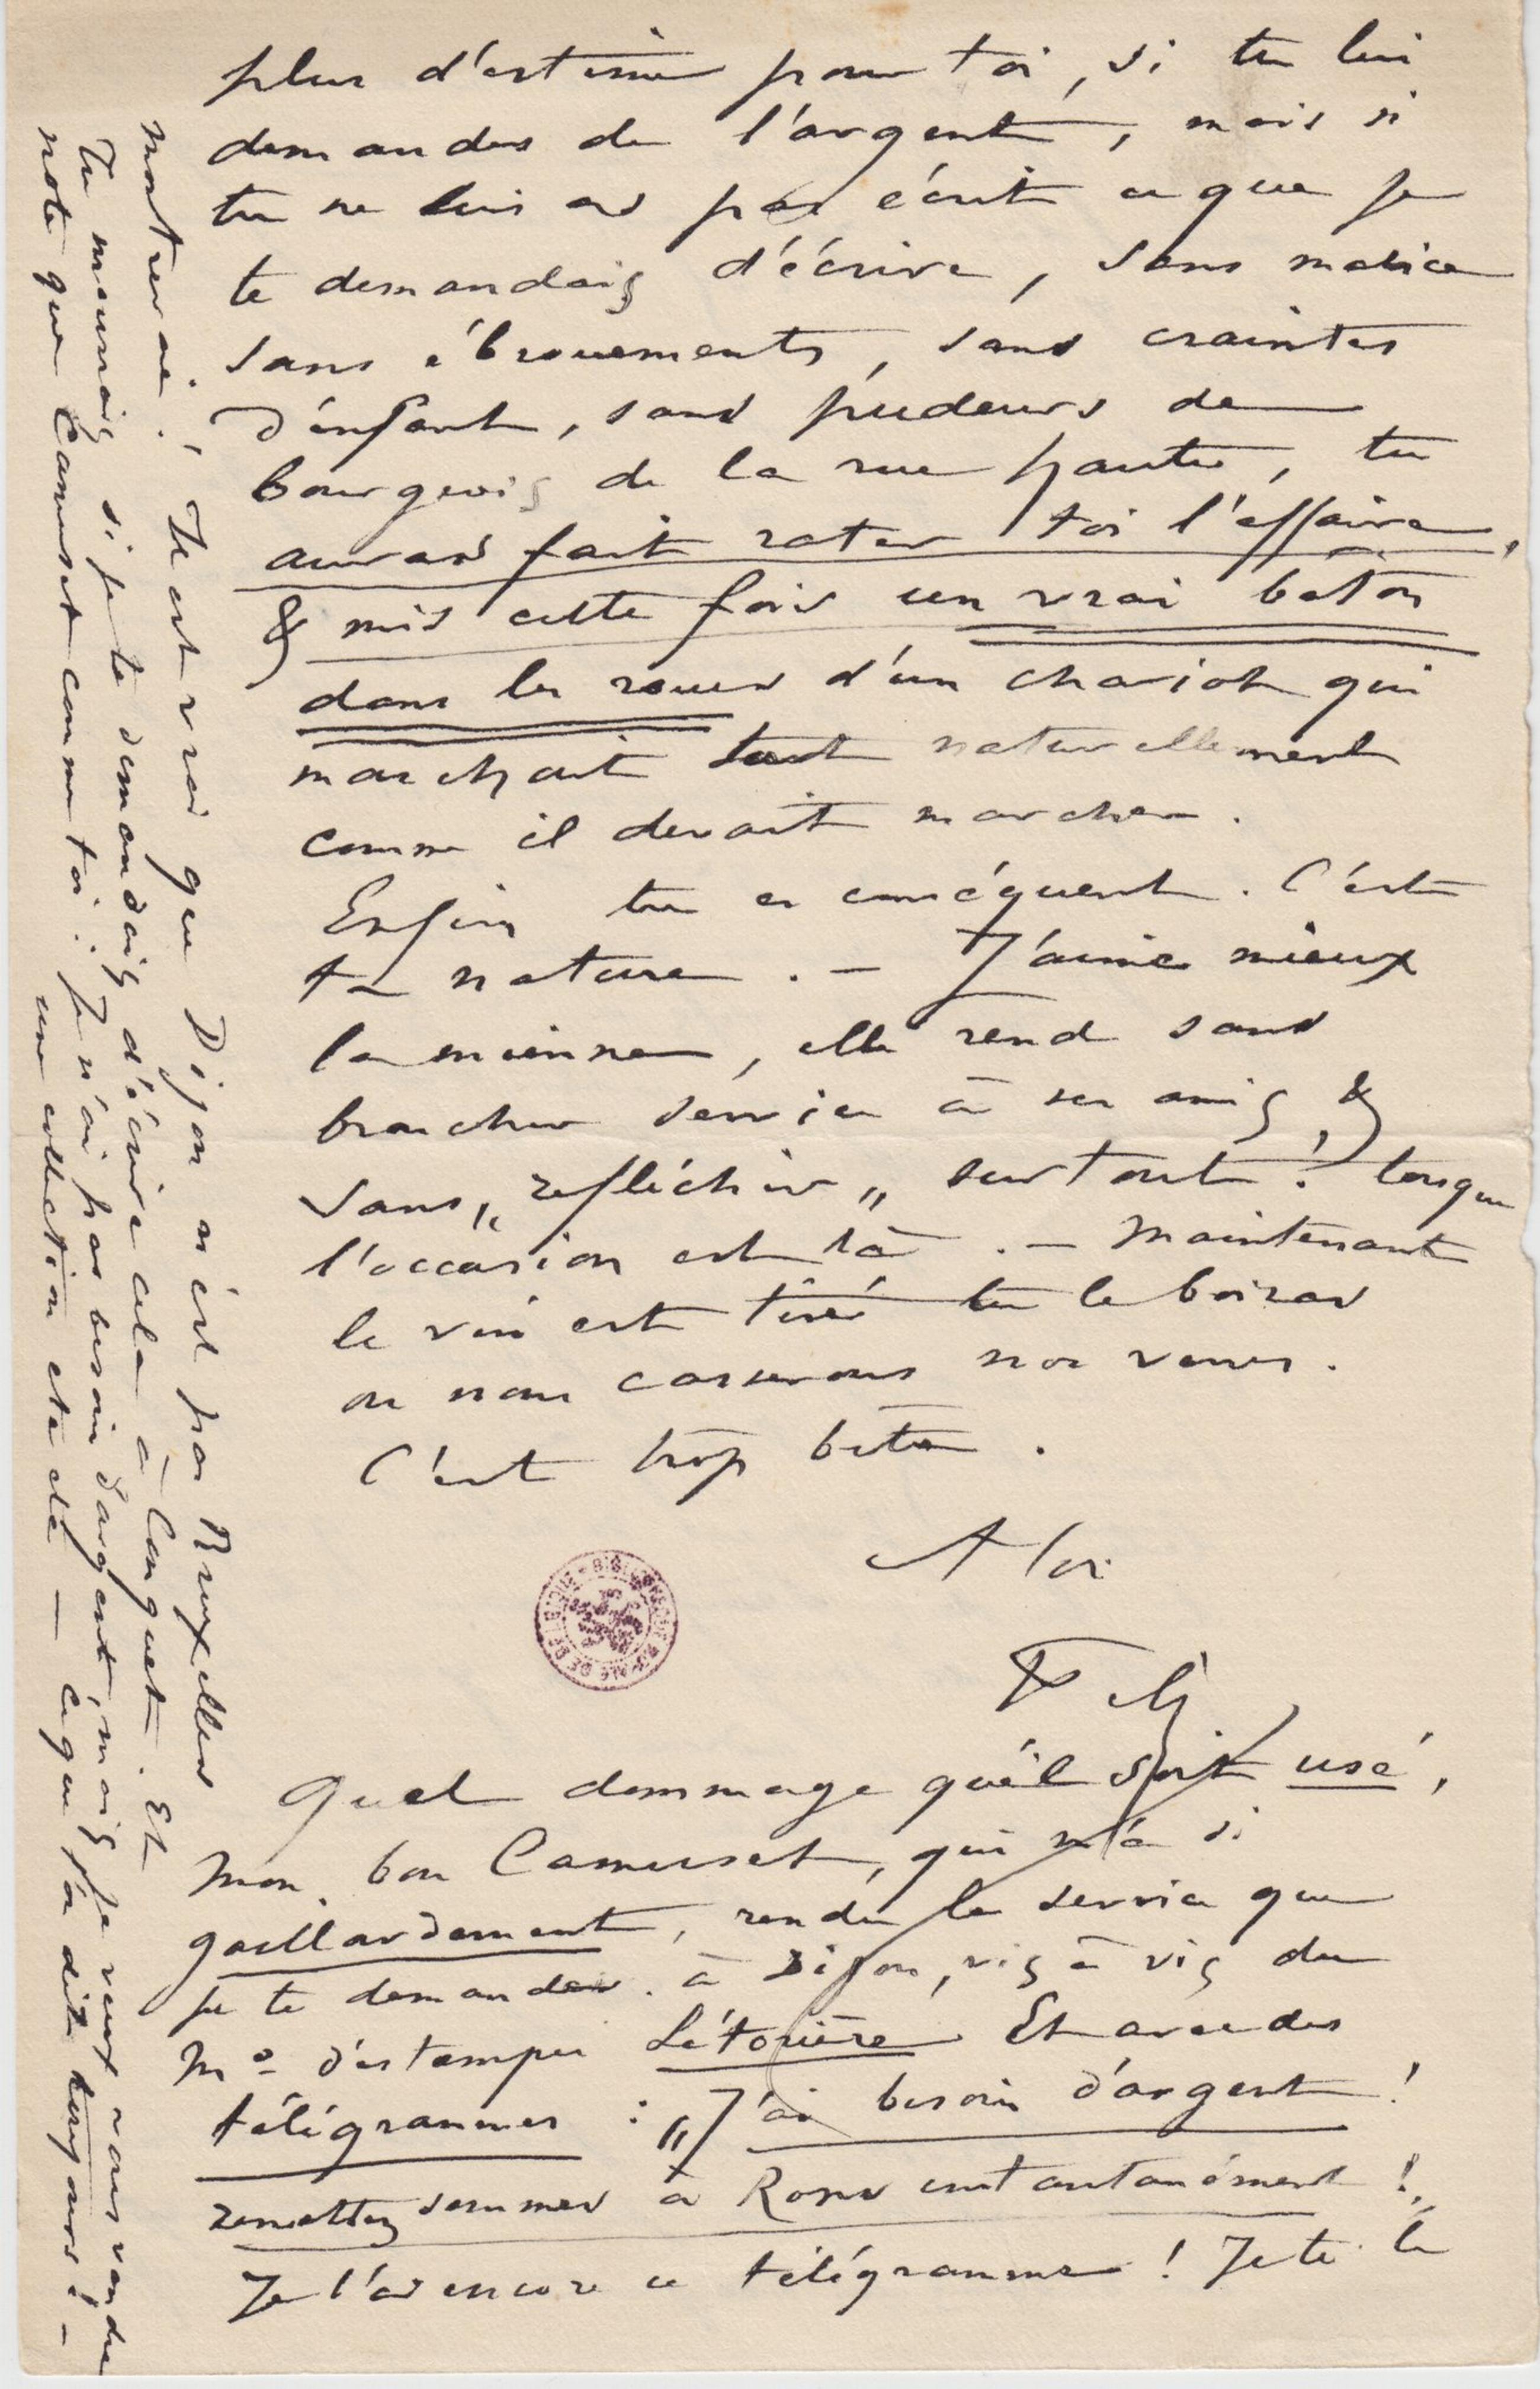 plus d'estime pour toi, si tu lui
demandes de l'argent, mais si
tu ne lui as pas écrit ce que je
te demandais d'écrire, sans malice
sans ébrouements, sans craintes
d'enfant, sans pudeurs de
bourgeois de la rue haute, tu
auras fait rater toi l'affaire,
& mis cette fois un vrai bâton
dans les roues d'un chariot qui
marchait tout naturellement
comme il devait marcher.
Enfin tu es conséquent. C'est
ta nature. — J'aime mieux
la mienne, elle rend sans
broncher service à ses amis, &
sans „refléchir„ surtout! lorsque
l'occasion est là. — Maintenant
le vin est tiré tu le boiras
ou nous casserons nos verres.
C'est trop bête.
A toi
Fély
Quel dommage qu'il soit usé,
mon bon Camuset, qui m'a si
gaillardement, rendu le service que
je te demandes à Dijon, vis à vis du
Md d'estampes Létorière Et avec des
télégrammes : „J'ai besoin d'argent!
remettez sommes à Rops instantanément!„
Je l'ai encore ce télégramme! Je te le
montrerai; Il est vrai que Dijon n'est pas Bruxelles
Tu mourrais si je te demandais d'écrire cela à Conquet. Et
note que Camuset comme toi: Je n'ai pas besoin d'argent, mais je veux vous vendre
une collection etc etc — ce que j'ai dit toujours! —